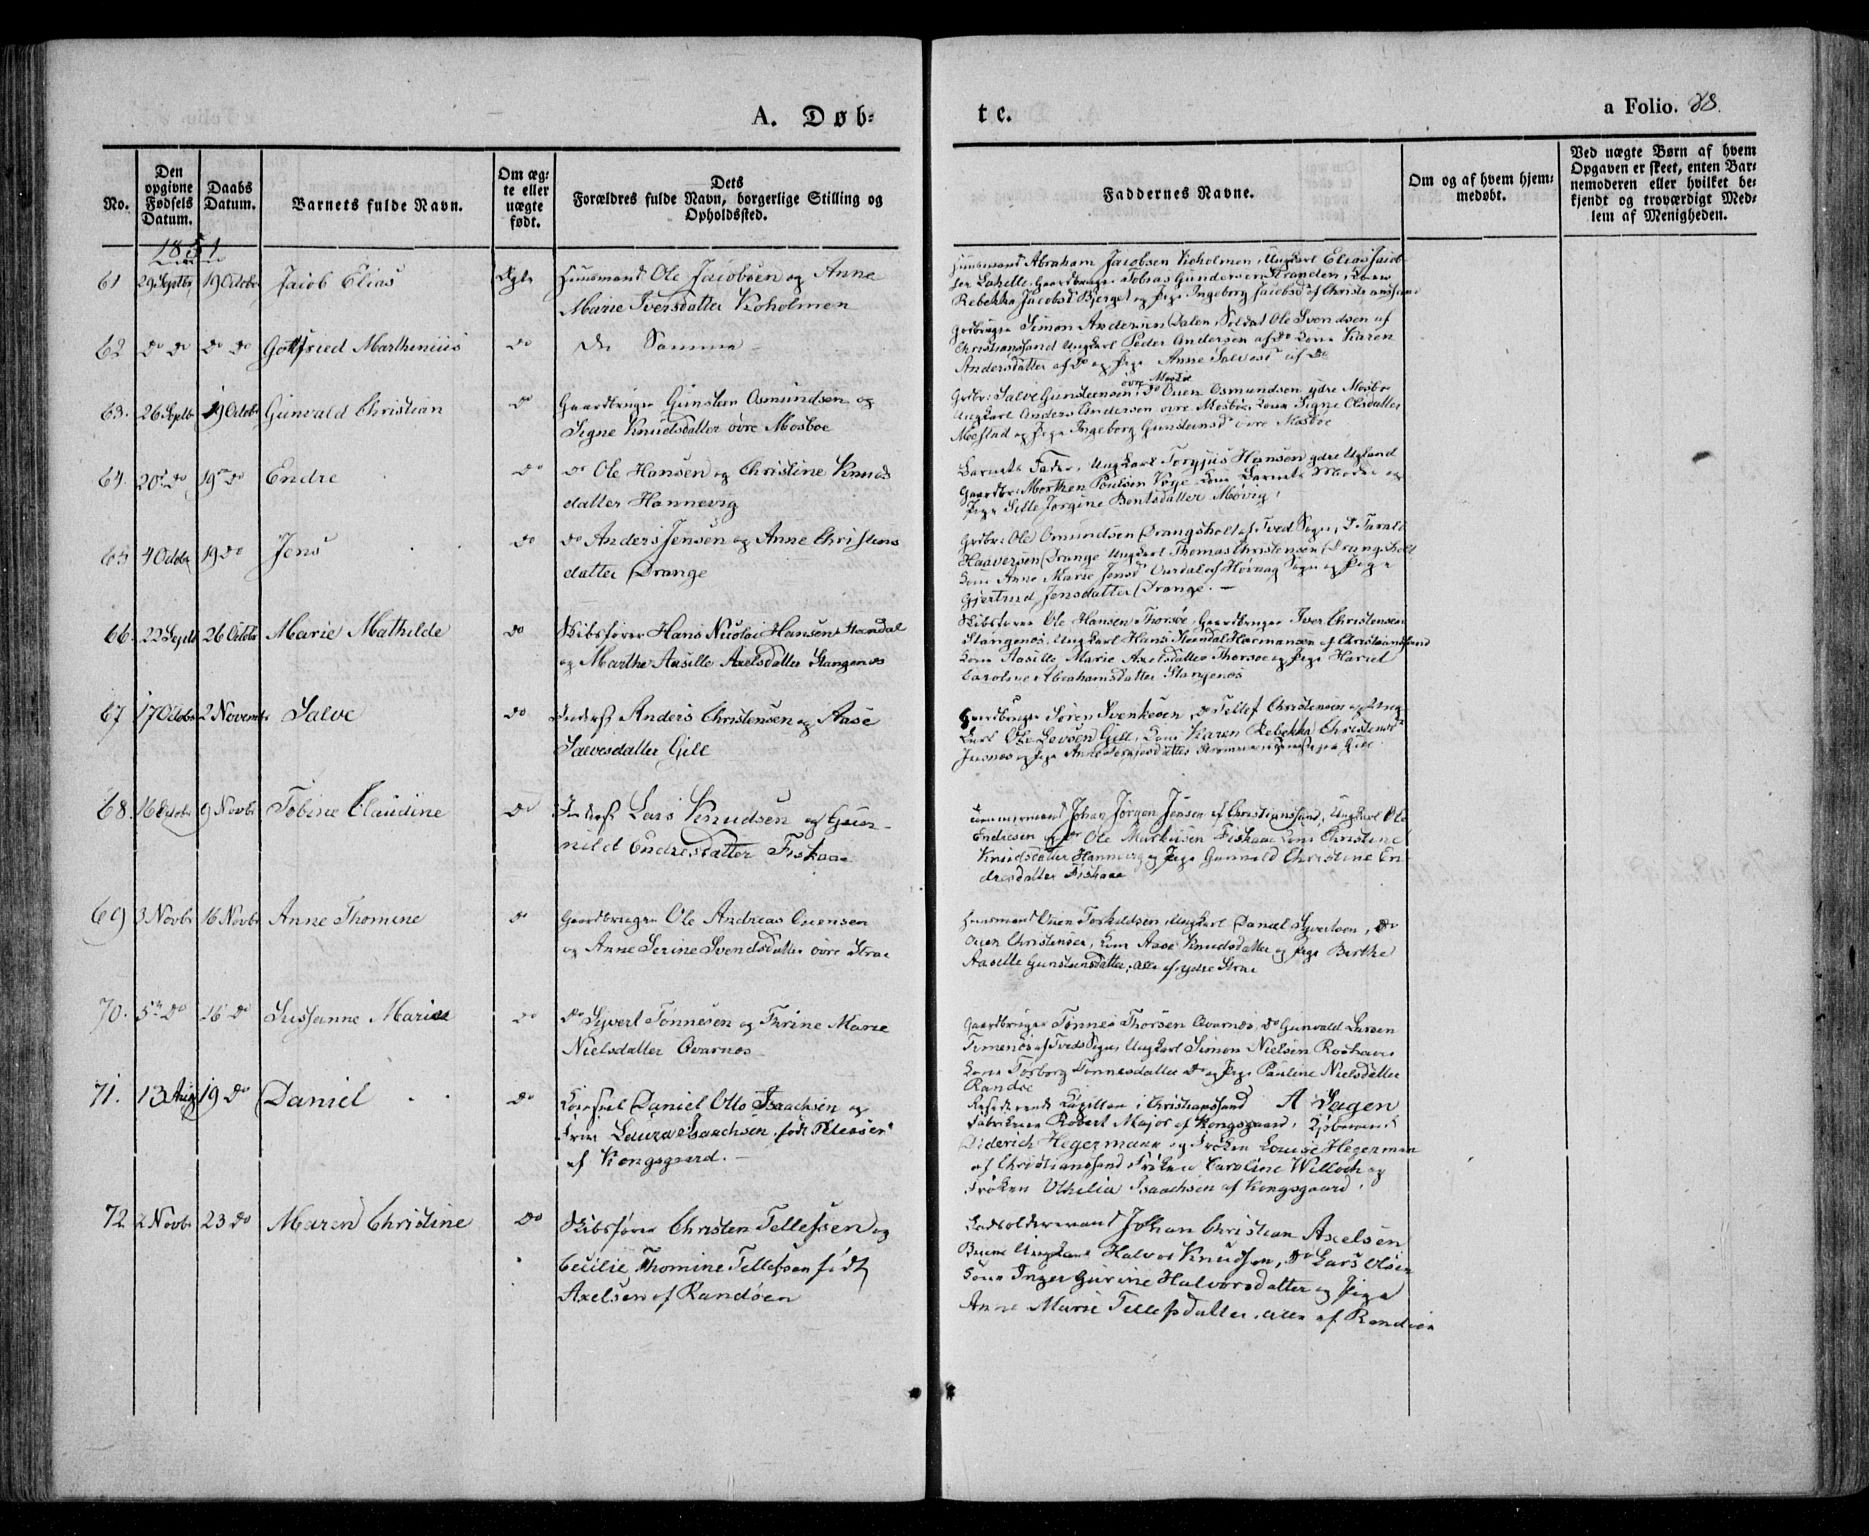 A. Døb-
te.
a Folio. 88.
No.
Den opgivne Fødsels Datum.
Daabs Datum.
Barnets fulde Navn.
Om ægte eller uægte født.
Dets
Forældres fulde Navn, borgerlige Stilling og
Opholdssted.
Faddernes Navne.
Om og af hvem hjemmedøbt.
Ved uægte Børn af hvem
Opgaven er skeet, enten Bar-
nemoderen eller hvilket be-
kjendt og troværdigt Med-
lem af Menigheden.
1851
61 29 Septbr 19 Octobr Jacob Elias Ægte Huusmand Ole Jacobsen og Anne
Marie Iversdatter Koholmen
Huusmand Abraham Jacobsen Koholmen, Ungkarl Elias Jacob
sen Gaardbruger Tobias Gundersen Stranden, Kone
Rebekka Jacobsd Bjerget og Pige Ingeborg Jacobsd af Christianssand
62 Do Do Do Do Gottfried Marthinius Do De Samme
Grdbruger Simon Andersen Dalen, Soldat Ole Svendsen af
Christianssand Ungkarl Peder Andersen af Do Kone Karen
Andersdatter af Do og Pige Anne Salvesd af Do
63. 26 Septbr 19 Octobr Gunvald Christian Do Gaardbruger Gunsten Osmundsen og
Signe Knudsdatter øvre Mosbøe
øvre Mosbø
Grdbr: Salve Gunstensen, Do Ouen Osmundsen ydre Mosbøe
Ungkarl Anders Andersen øvre Mosbø, Kone Signe Olsdatter
Moestad og Pige Ingeborg Gunstensd øvre Mosbøe
64. 20de Do 19de Do Endre Do Do Ole Hansen og Christine Knuds
datter Hannevig
Barnets Fader, Ungkarl Torgjus Hansen ydre Ugland
Gaardbr: Morthen Poulsen Voge Kone Barnets Moder og
Pige Sille Jørgine Bentsdatter Møvig
65 4 Octobr 19 Do Jens Do Do Anders Jensen og Anne Christens
datter Drange
Grdbr: Ole Omundsen Drangsholt af Tved Sogn, Do Tarald
Haaversen Drange Ungkarl Thomas Christensen Drangsholt
Kone Anne Marie Jensd af Høvaag Sogn og Pige
Gjertrud Jensdatter Drange. –
66. 22 Septbr 26 Octobr Marie Mathilde Do Skibsfører Hans Nicolai Hansen Stendal
og Marthe Aasille Axelsdatter Stangenes
Skibsfører Ole Hansen Thorsøe, Gaardbruger Iver Christensen
Stangenes, Ungkarl Hans Stendal Hermansen af Christianssand
Kone Aasille Marie Axelsdatter Thorsøe og Pige Hariet
Caroline Abrahamsdatter Stangenes
67 17 Octobr 2 Novembr Salve Do Inderst Anders Christensen og Aase
Salvesdatter Gill
Gaardbruger Søren Svenkesen, Do Tellef Christensen og Ung
karl Ole Sevesen Gill, Kone Karen Rebekka Christensd
og Pige Anne
68. 16 Octobr 9 Novbr Tobine Claudine Do Inderst Lars Knudsen og Gun-
nild Endresdatter Fiskaae
Tømmermand Johan Jørgen Jensen af Christianssand, Ungkarl Ole
Endresen og Do Ole Markusen Fiskaae Kone Christine
Knudsdatter Hannevig og Pige Gunvald Christine En
dresdatter Fiskaae
69 3 Novbr 16 Novbr Anne Thomine Do Gaardbruger Ole Andreas Ouensen
og Anne Serine Svendsdatter øvre Strai
Huusmand Ouen Torkildsen, Ungkarl Daniel Syvertsen, Do
Ouen Christensen, Kone Aase Knudsdatter og Pige Berthe
Aasille Gunstensdatter, Alle af ydre Strai
70. 5te Do 16 Do Sussanne Marie Do Do Syvert Tønnesen og Thrine Marie
Nielsdatter Qvarnes
Gaardbruger Tønnes Thorsen Qvarnes, Do Gunvald Larsen
Timenes af Tveds Sogn, Ungkarl Simon Nielsen
Kone Torborg Tønnesdatter Do og Pige Pauline Nielsdatter
Randøe
71. 13 Aug 19 Do Daniel Do Konsul Daniel Otto Isaachsen og
Frue Laura Isaachsen, født Peterser
af Kongsgaard. –
Residerende Kapellan i Christianssand A Sagen
Fabrikeier Robert Major af Kongsgaard, Kjøbmand
Diderich Hegermann og Frøken Louise Hegerman
af Christianssand Frøken Caroline Willoch og
Frøken Othilia Isaachsen af Kongsgaard.
72 2 Novbr 23 Do Maren Christine Do Skibsfører Christen Tellefsen og
Cecilie Thomine Tellefsen født
Axelsen af Randøen
Johan Christian Axelsen
Ungkarl Halvor Knudsen, Do Lars Olsen
Kone Inger Gurine Halvorsdatter og Pige
Anne Marie Tellefsdatter, Alle af Randøen